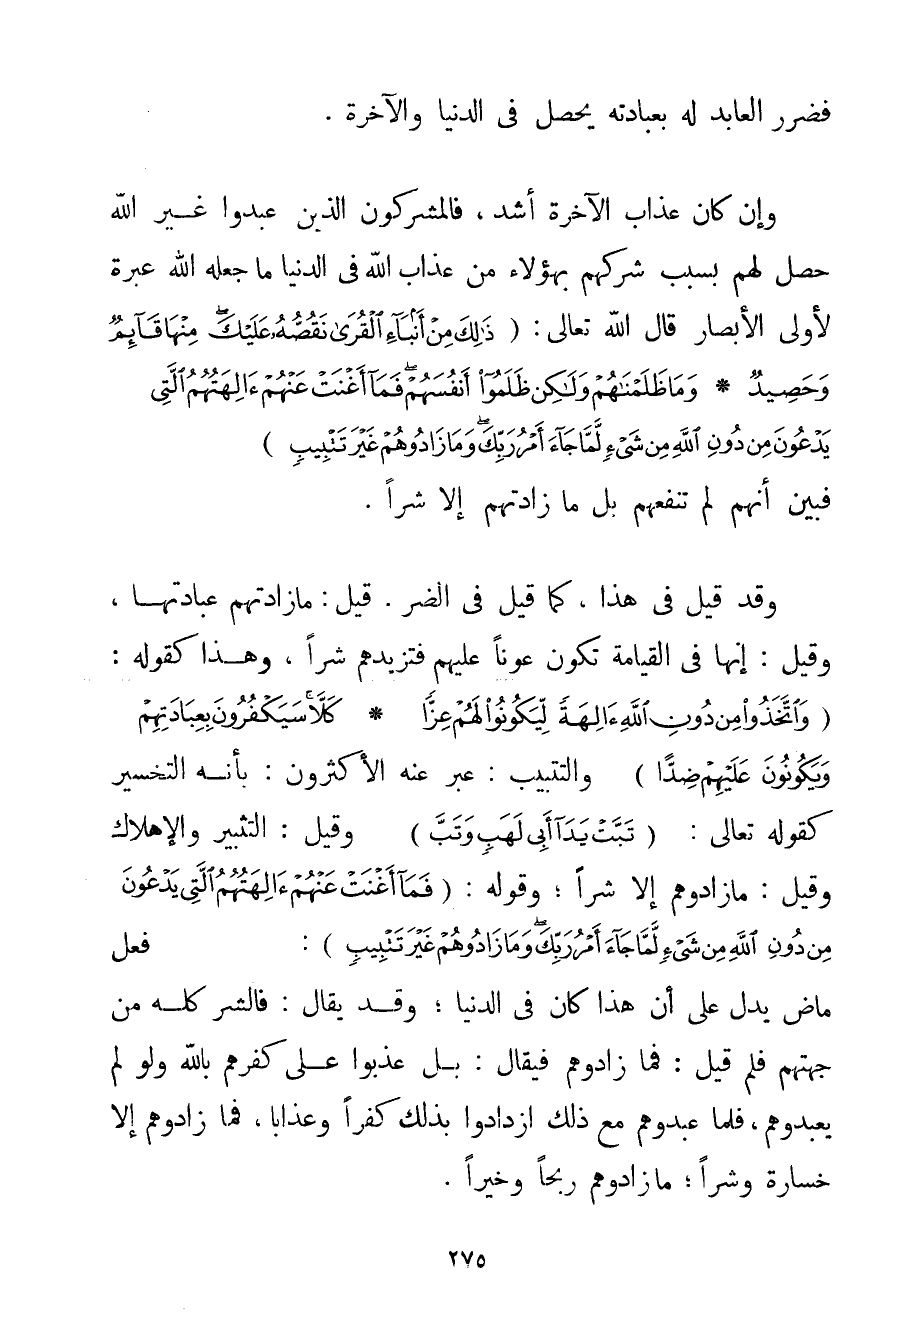 فضرر العابد له بعبادته يحصل فى الدنيا والآخرة .
وإن كان عذاب الآخرة أشد ، فالمشركون الذين عبدوا غــير الله
حصل لهم بسبب شركهم بهؤلاء من عذاب الله فى الدنيا ما جعله الله عبرة
لأولى الأبصار قال الله تعالى : ( ذَٰلِكَ مِنْ أَنۢبَآءِ ٱلْقُرَىٰ نَقُصُّهُۥ عَلَيْكَ ۖ مِنْهَا قَآئِمٌ
وَحَصِيدٌ * وَمَا ظَلَمْنَٰهُمْ وَلَٰكِن ظَلَمُوٓا۟ أَنفُسَهُمْ ۖ فَمَآ أَغْنَتْ عَنْهُمْ ءَالِهَتُهُمُ ٱلَّتِى
يَدْعُونَ مِن دُونِ ٱللَّهِ مِن شَىْءٍ لَّمَّا جَآءَ أَمْرُ رَبِّكَ ۖ وَمَا زَادُوهُمْ غَيْرَ تَتْبِيبٍ )
فبين أنهم لم تنفعهم بل ما زادتهم إلا شراً .
وقد قيل فى هذا ، كما قيل فى الضر . قيل : مازادتهم عبادتهــا ،
وقيل : إنها فى القيامة تكون عوناً عليهم فتزيدهم شراً ، وهــذا كقوله :
( وَٱتَّخَذُوا۟ مِن دُونِ ٱللَّهِ ءَالِهَةً لِّيَكُونُوا۟ لَهُمْ عِزًّا * كَلَّا ۚ سَيَكْفُرُونَ بِعِبَادَتِهِمْ
وَيَكُونُونَ عَلَيْهِمْ ضِدًّا ) والتتبيب : عبر عنه الأكثرون : بأنــه التخسير
كقوله تعالى : ( تَبَّتْ يَدَآ أَبِى لَهَبٍ وَتَبَّ ) وقيل : التثبير والإهلاك
وقيل : مازادوهم إلا شراً ؛ وقوله : ( فَمَآ أَغْنَتْ عَنْهُمْ ءَالِهَتُهُمُ ٱلَّتِى يَدْعُونَ
مِن دُونِ ٱللَّهِ مِن شَىْءٍ لَّمَّا جَآءَ أَمْرُ رَبِّكَ ۖ وَمَا زَادُوهُمْ غَيْرَ تَتْبِيبٍ ) : فعل
ماض يدل على أن هذا كان فى الدنيا ؛ وقــد يقال : فالشر كلــه من
جهتهم فلم قيل : فما زادوهم فيقال : بــل عذبوا عــلى كفرهم بالله ولو لم
يعبدوهم ، فلما عبدوهم مع ذلك ازدادوا بذلك كفراً وعذابا ، فما زادوهم إلا
خسارة وشراً ؛ مازادوهم ربحاً وخيراً .
٢٧٥